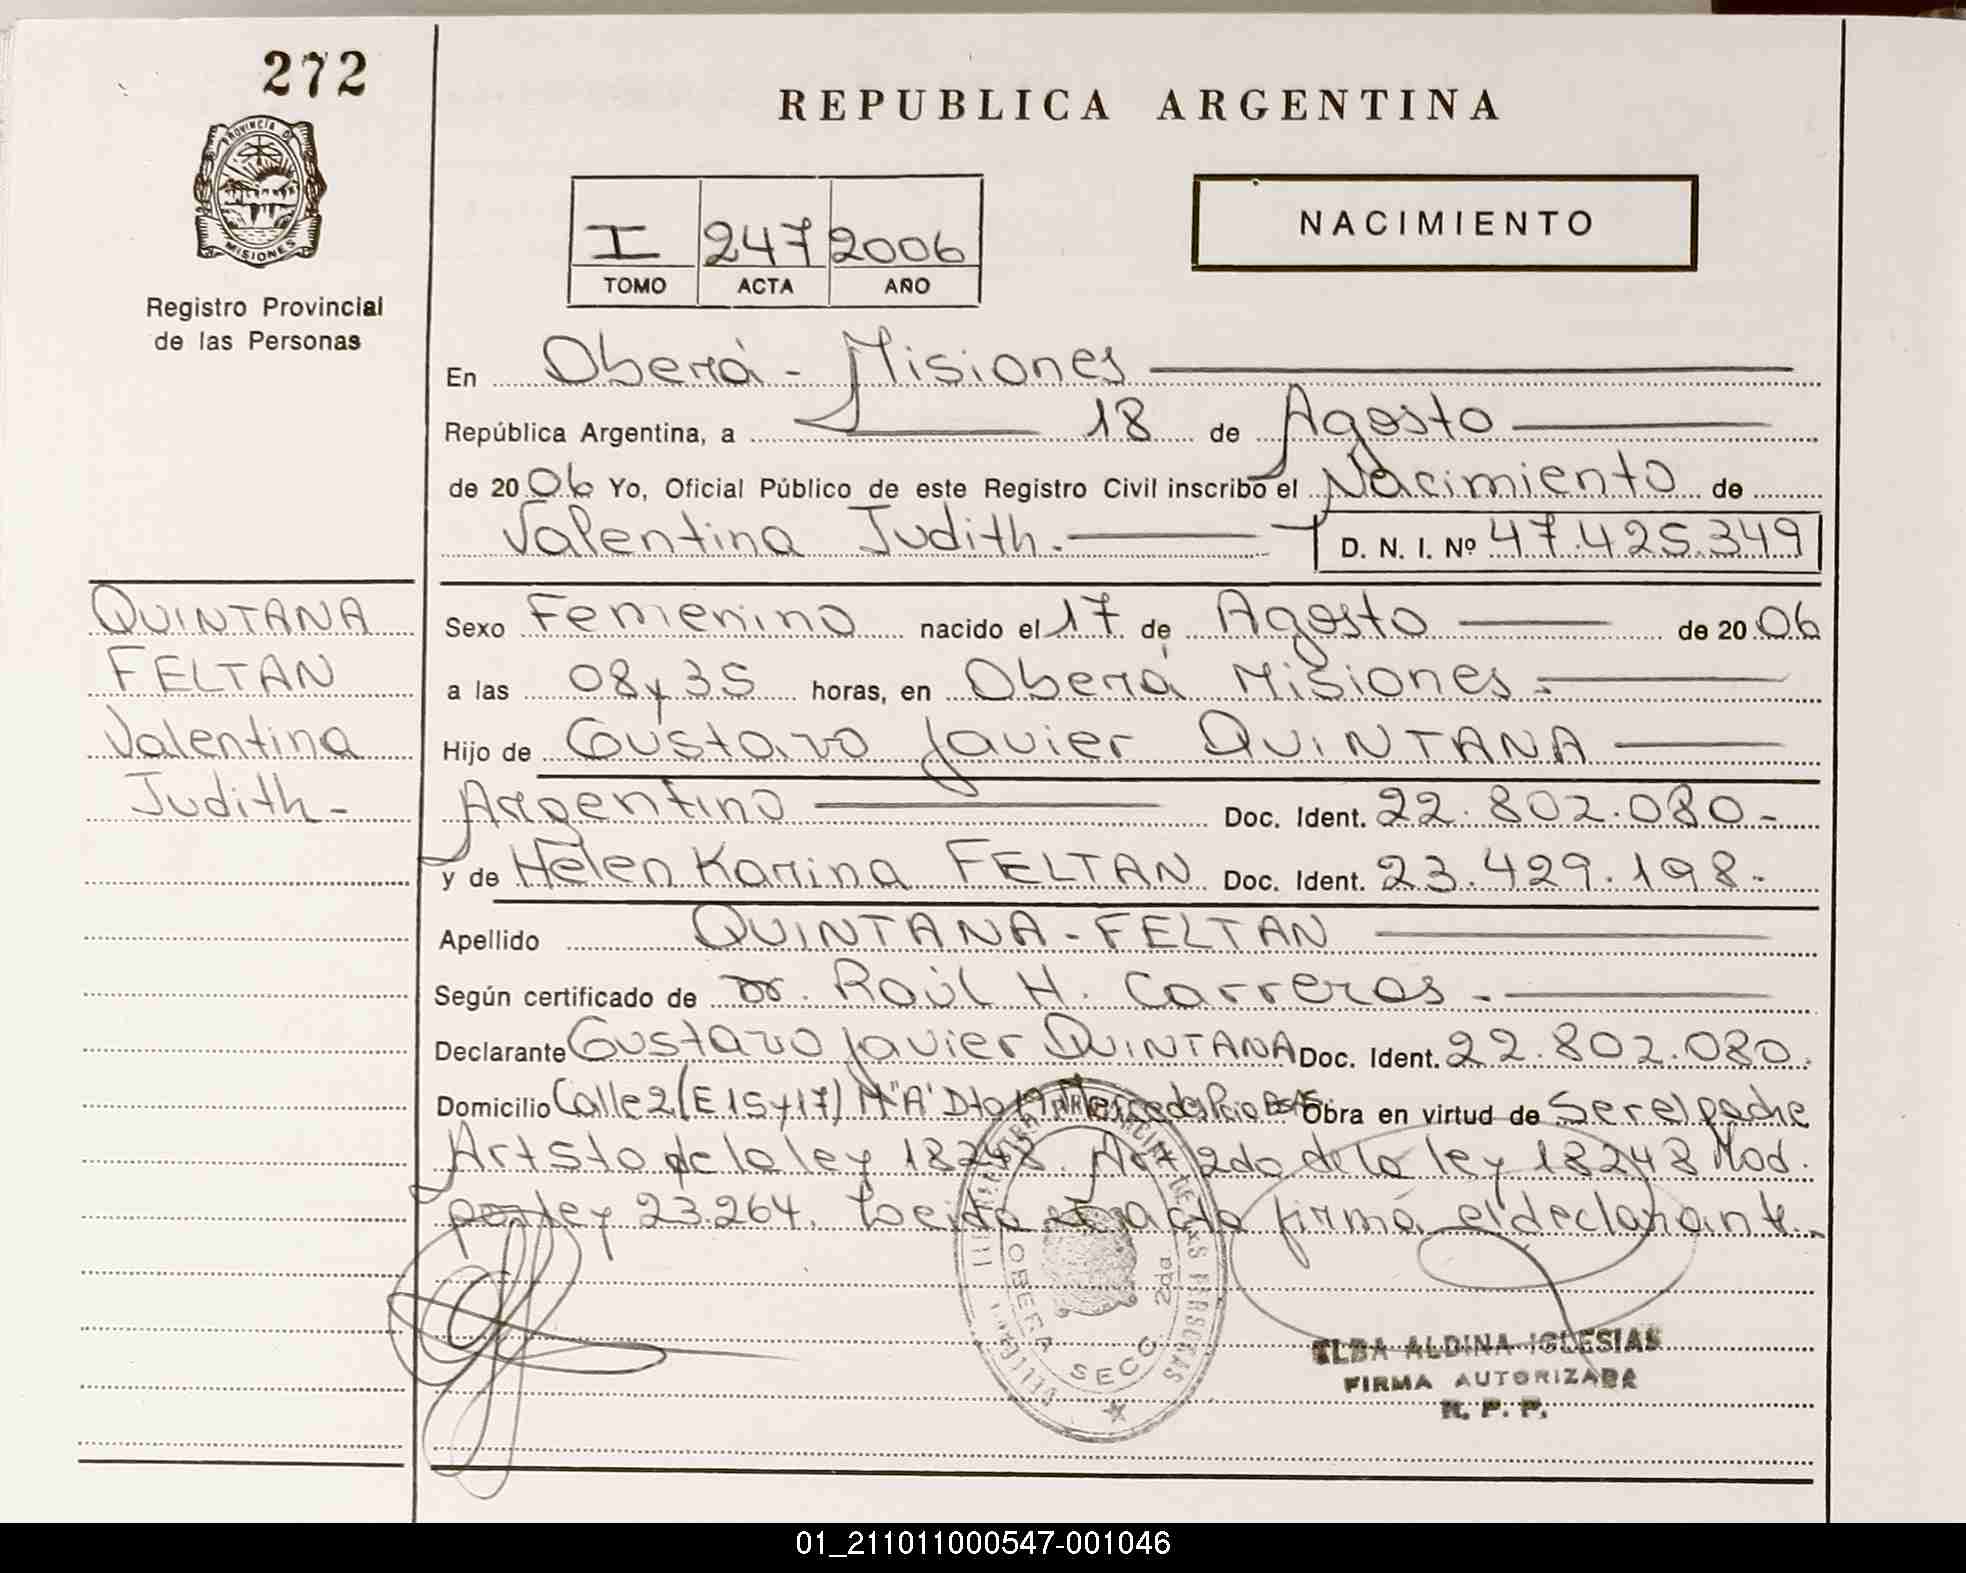 272
PROVINCIA DE
MISIONES
Registro Provincial
de las Personas
REPUBLICA ARGENTINA
I 247 2006
TOMO ACTA AÑO
NACIMIENTO
En Oberá - Misiones
República Argentina, a 18 de Agosto
de 2006 Yo, Oficial Público de este Registro Civil inscribo el Nacimiento de
Valentina Judith. D. N. I. Nº 47.425.349
QUINTANA
FELTAN
Valentina
Judith-
Sexo Femenino nacido el 17 de Agosto de 2006
a las 08 y 35 horas, en Oberá Misiones.
Hijo de Gustavo Javier QUINTANA
Argentino Doc. Ident. 22.802.080-
y de Helen Karina FELTAN Doc. Ident. 23.429.198-
Apellido QUINTANA-FELTAN
Según certificado de Dr. Raúl H. Carreras.
Declarante Gustavo Javier QUINTANA Doc. Ident. 22.802.080.
Domicilio Calle 2 (E 15 y 17) M "A" Dto Mercedes Obra en virtud de Ser el padre
Art 5to de la ley 18248. Art 2do de la ley 18248 Mod.
por ley 23.264. Leída acta firma el declarante.
OBERA SECC 2da
ELBA ALDINA IGLESIAS
FIRMA AUTORIZADA
R. P. P.
01_211011000547-001046